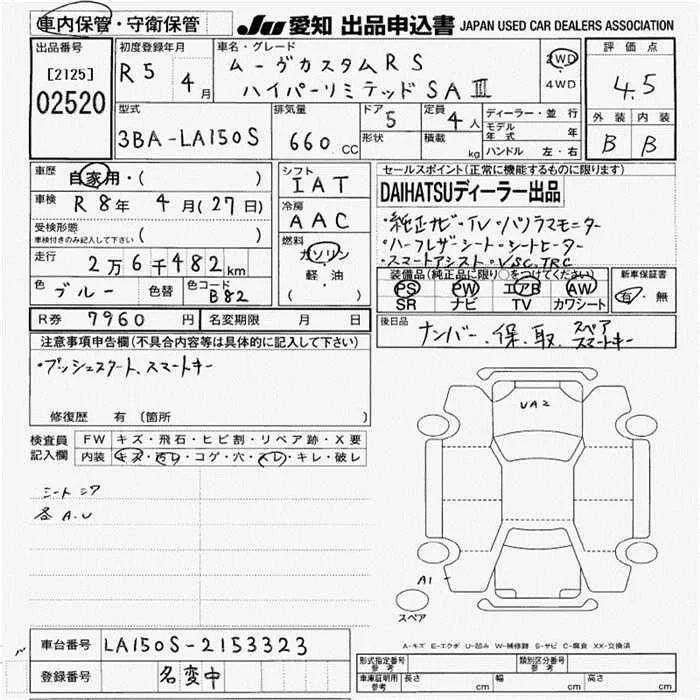 車内保管・守衛保管 JU 愛知 出品申込書 JAPAN USED CAR DEALERS ASSOCIATION
出品番号 [2125] 02520
初度登録年月 R5 4月
車名・グレード ムーヴカスタムRS ハイパーリミテッドSAⅢ
2WD
4WD
評価点 4.5
外装 内装
B B
型式 3BA-LA150S
排気量 660 CC
ドア 5
形状
定員 4人
積載 kg
ディーラー・並行
モデル年式 年
ハンドル 左・右
車歴 自家用・( )
車検 R8年 4月(27日)
受検形態 車検付きのみ記入して下さい ( )
走行 2万6千482km
色 ブルー 色替 色コード B82
シフト IAT
冷房 AAC
燃料 ガソリン
軽・油
( )
セールスポイント(正常に機能するものに限ります)
DAIHATSUディーラー出品
・純正ナビ・TV・パノラマモニター
・ハーフレザーシート・シートヒーター
・スマートアシスト・VSC.TRC
装備品(純正品に限り○をつけてください)
PS PW エアB AW
SR ナビ TV カワシート
新車保証書
有・無
R券 7960円 名変期限 月 日
後日品 ナンバー.保.取. スペア スマートキー
注意事項申告欄(不具合内容等は具体的に記入して下さい)
・プッシュスタート、スマートキー
修復歴 有 〔箇所 〕
検査員記入欄
FW キズ・飛石・ヒビ割・リペア跡・X要
内装 キズ・汚レ・コゲ・穴・スレ・キレ・破レ
シート シワ
各 A.U
UA2
A1
スペア
A-キズ E-エクボ U-凹み W-補修跡 S-サビ C-腐食 XX-交換済
車台番号 LA150S-2153323
登録番号 名変中
形式指定番号 参考
類別区分番号 参考
車庫証明用 参考 長さ cm 幅 cm 高さ cm